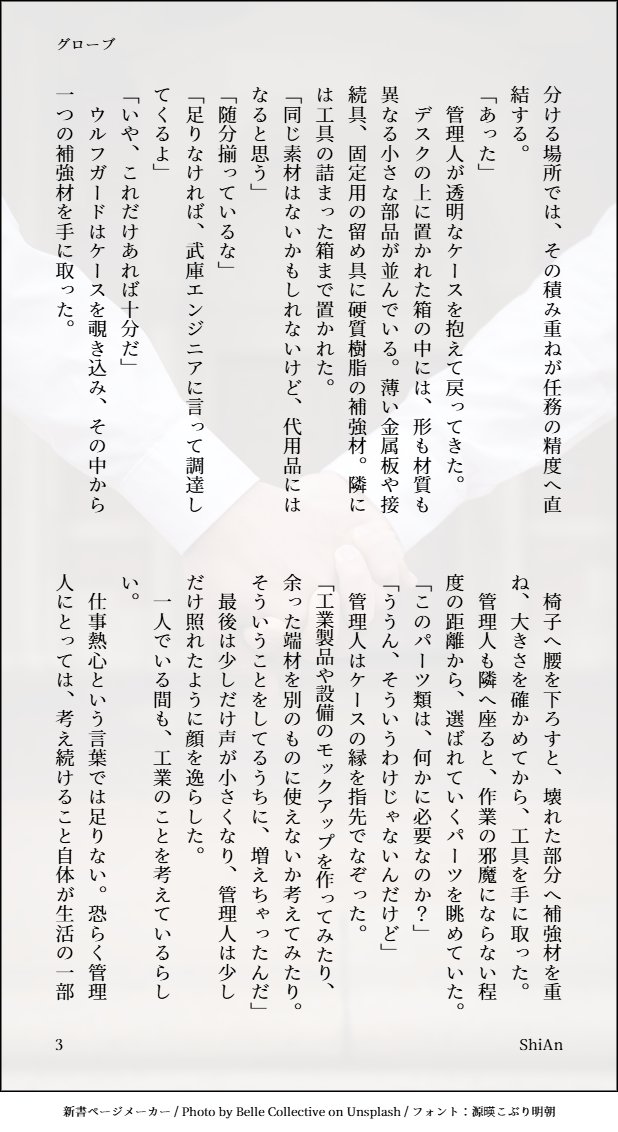 グローブ
分ける場所では、その積み重ねが任務の精度へ直
結する。
「あった」
　管理人が透明なケースを抱えて戻ってきた。
　デスクの上に置かれた箱の中には、形も材質も
異なる小さな部品が並んでいる。薄い金属板や接
続具、固定用の留め具に硬質樹脂の補強材。隣に
は工具の詰まった箱まで置かれた。
「同じ素材はないかもしれないけど、代用品には
なると思う」
「随分揃っているな」
「足りなければ、武庫エンジニアに言って調達し
てくるよ」
「いや、これだけあれば十分だ」
　ウルフガードはケースを覗き込み、その中から
一つの補強材を手に取った。
　椅子へ腰を下ろすと、壊れた部分へ補強材を重
ね、大きさを確かめてから、工具を手に取った。
　管理人も隣へ座ると、作業の邪魔にならない程
度の距離から、選ばれていくパーツを眺めていた。
「このパーツ類は、何かに必要なのか？」
「ううん、そういうわけじゃないんだけど」
　管理人はケースの縁を指先でなぞった。
「工業製品や設備のモックアップを作ってみたり、
余った端材を別のものに使えないか考えてみたり。
そういうことをしてるうちに、増えちゃったんだ」
　最後は少しだけ声が小さくなり、管理人は少し
だけ照れたように顔を逸らした。
　一人でいる間も、工業のことを考えているらし
い。
　仕事熱心という言葉では足りない。恐らく管理
人にとっては、考え続けること自体が生活の一部
3
ShiAn
新書ページメーカー / Photo by Belle Collective on Unsplash / フォント：源暎こぶり明朝